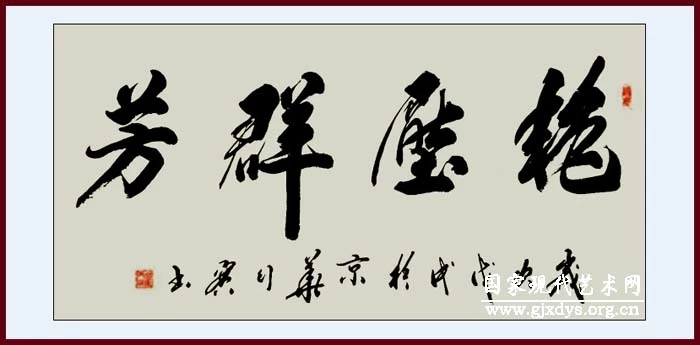 艳壓群芳
歲次戊戌於京華书
国家现代艺术网
www.gjxdys.org.cn